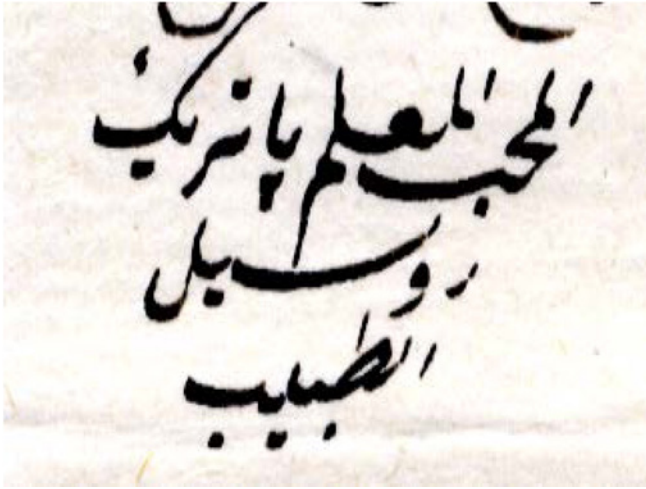 المحب المعلم پاتريك
روسيل
الطبيب